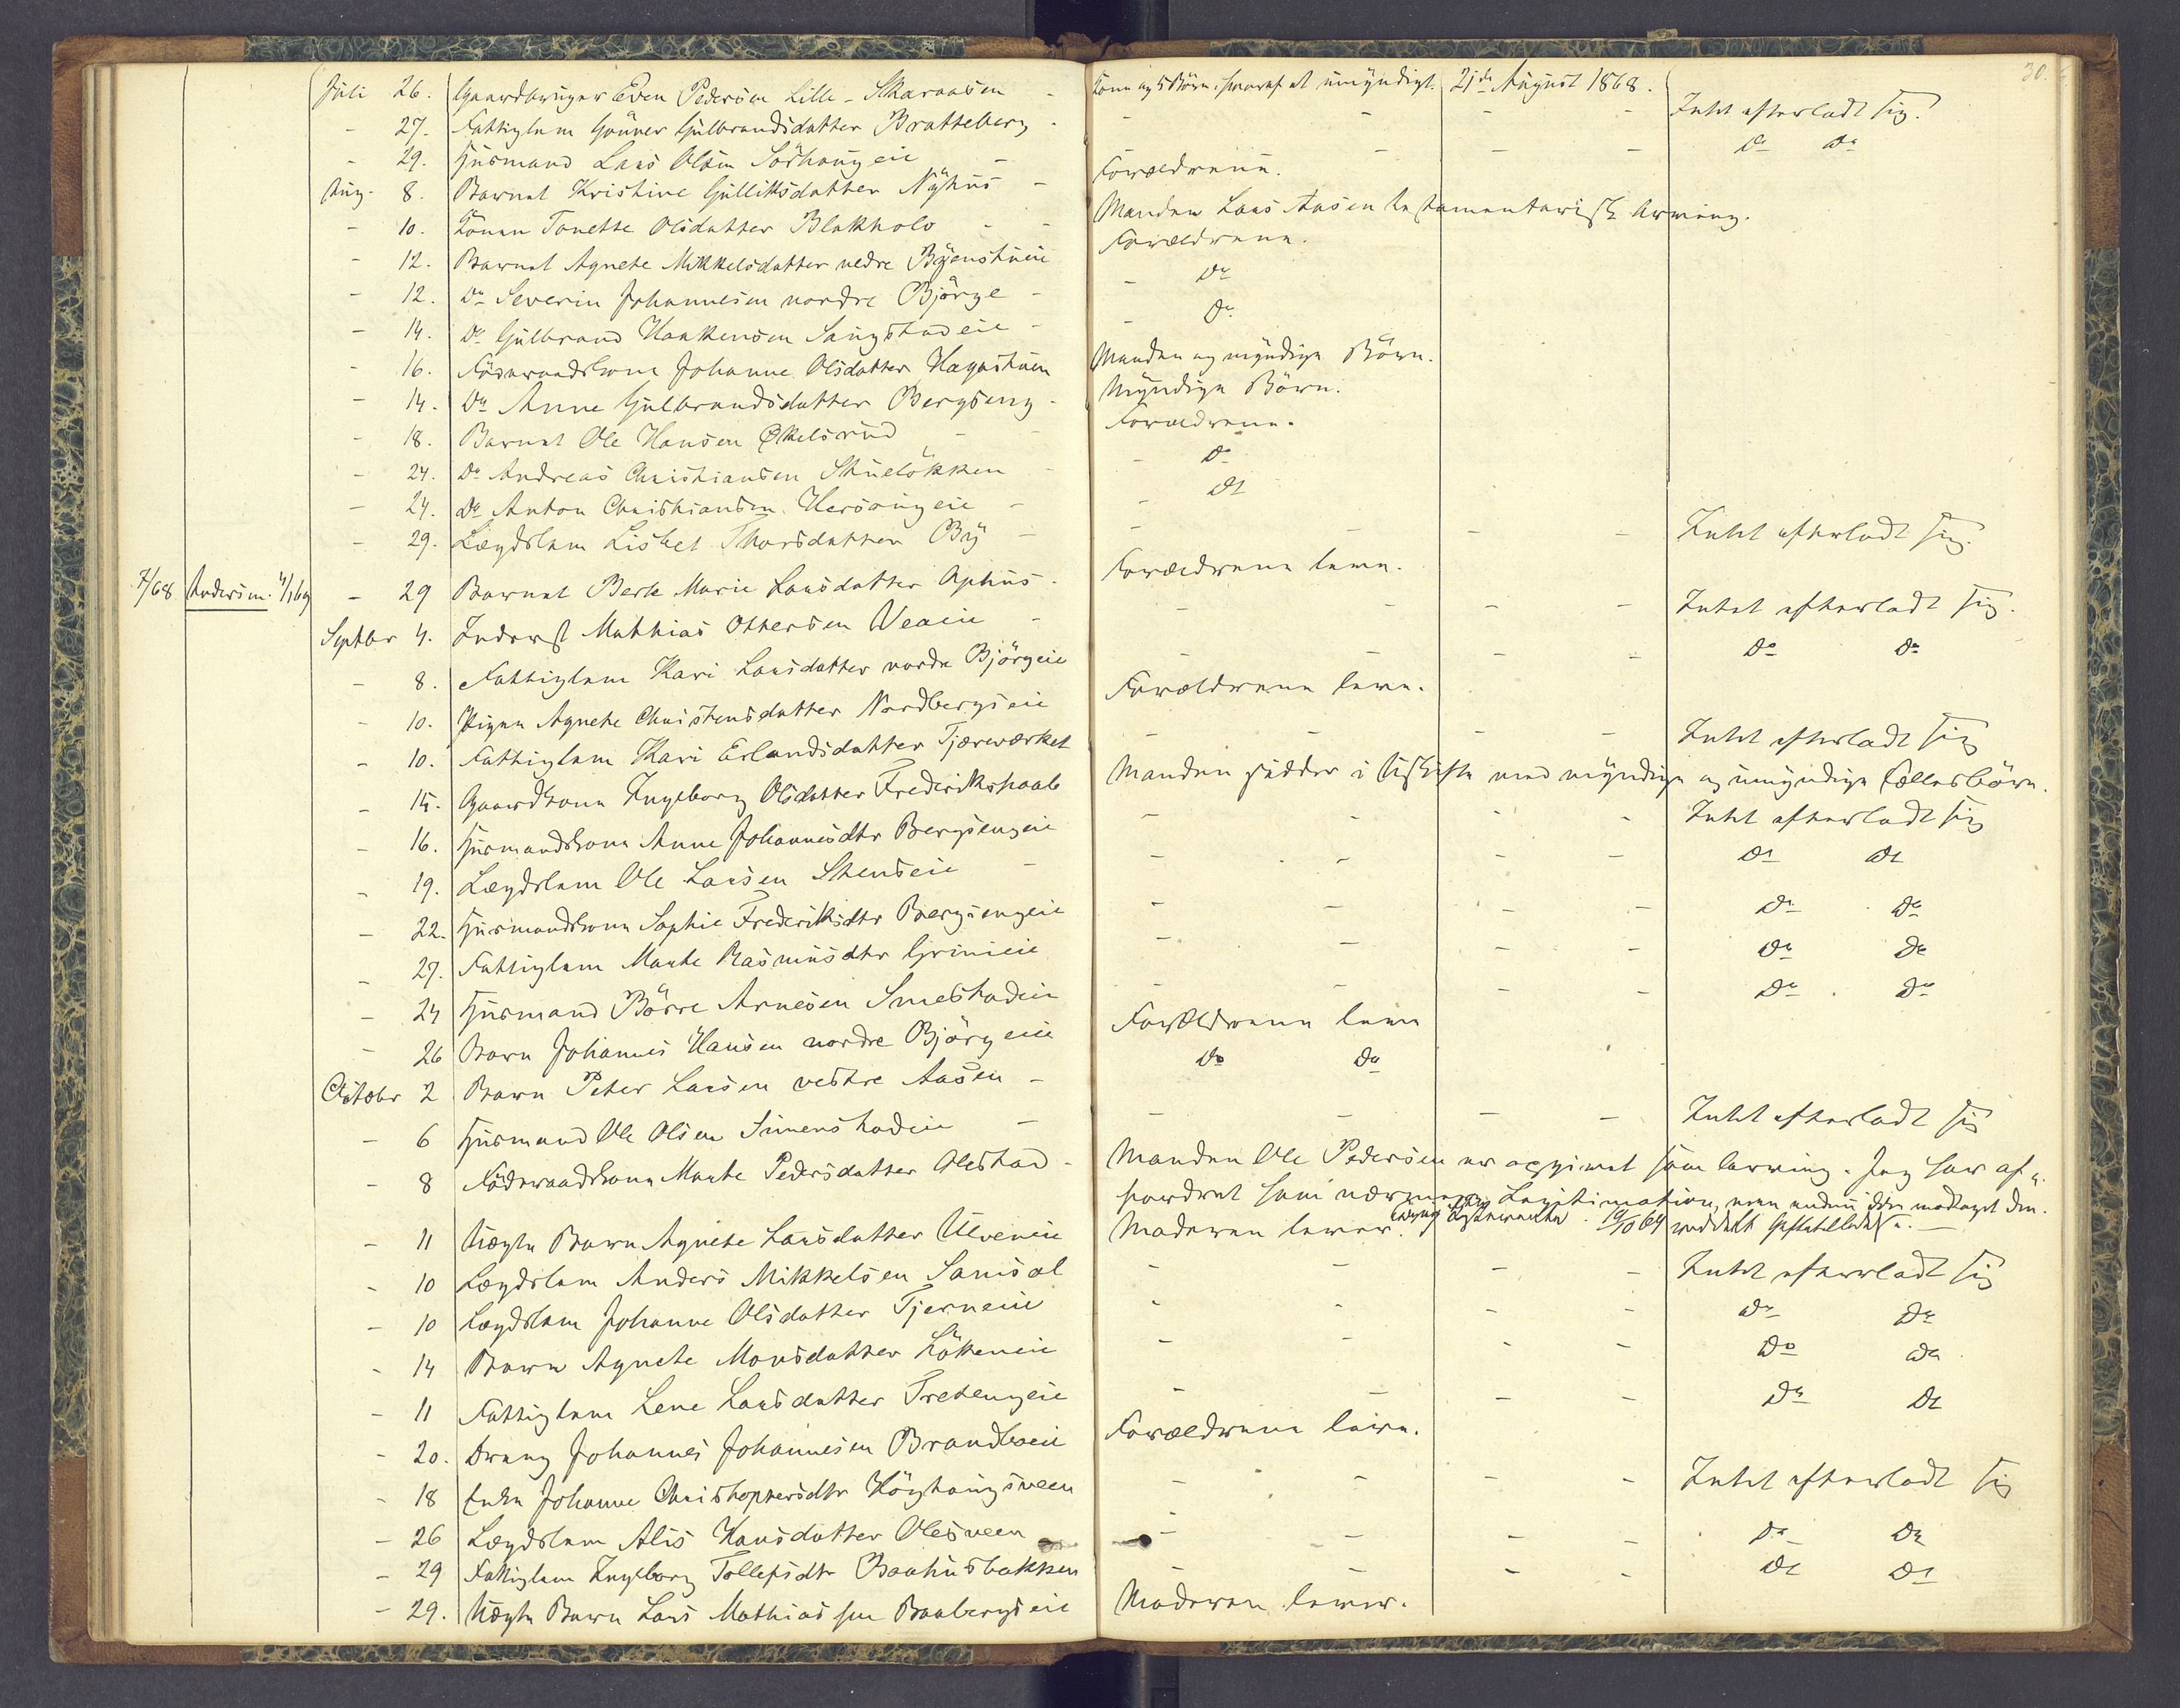 30.
Juli 26. Gaardbruger Even Pedersen Lille-Skaraasen - Kone og 5 Börn, hvoraf et umyndigt. 21de August 1868.
- 27. Fattiglem Gunner Gulbrandsdatter Bratteberg - - - - - Intet efterladt sig.
- 29. Husmand Lars Olsen Sörhaugeie - - - - Do Do
Aug. 8. Barnet Kristine Gulliksdatter Nyhus - Forældrene.
- 10. Konen Tonette Olsdatter Blakholo - - Manden Lars Aasen testamentarisk Arving.
- 12. Barnet Agnete Mikkelsdatter nedre Byenstueie Forældrene.
- 12. Do Severin Johannesen nordre Björge - - Do
- 14. Do Gulbrand Haakensen Saugstadeie - - Do
- 16. Föderaadskone Johanne Olsdatter Hagastuen Manden og myndige Börn.
- 14. Do Anne Gulbrandsdatter Bergseng - Myndige Börn.
- 18. Barnet Ole Hansen Økelsrud - - Forældrene.
- 24. Do Andreas Christiansen Stuelökken - - Do
- 24. Do Anton Christiansen Hersaugeie - - Do
- 29. Lægdslem Lisbet Thorsdatter By - - - - - Intet efterladt sig.
7/68 Andersen. 4/1 69 - 29 Barnet Berte Marie Larsdatter Ophus - Forældrene leve.
Septbr 4. Inderst Mathias Ottersen Veaeie - - - - - Intet efterladt sig.
- 8. Fattiglem Kari Larsdatter nordre Björgeie - - - - Do Do
- 10. Pigen Agnete Christensdatter Nordbergseie Forældrene leve.
- 10. Fattiglem Kari Erlandsdatter Tjæreværket - - - - Intet efterladt sig
- 15. Gaardkone Ingeborg Olsdatter Frederikshaab Manden sidder i Uskifte med myndige og umyndige Fællesbörn.
- 16. Husmandskone Anne Johannesdtr Bergsengeie - - - - Intet efterladt sig
- 19. Lægdslem Ole Larsen Stenseie - - - - - Do Do
- 22. Husmandskone Sophie Frederiksdtr Bergsengeie - - - - Do Do
- 27. Fattiglem Marte Rasmusdtr Grinieie - - - - Do Do
- 24 Husmand Börre Arnesen Smestadeie - - - - Do Do
- 26 Barn Johannes Hansen nordre Björgeie Forældrene leve
Octobr 2 Barn Peter Larsen vestre Aasen - Do Do
- 6 Husmand Ole Olsen Simenstadeie - - - - - Intet efterladt sig
- 8 Föderaadskone Marte Pedersdatter Olestad - Manden Ole Pedersen er opgivet som Arving. Jeg har af-
fordret ham nærmere Legitimation, men endnu ikke modtaget den.
- 11 Uægte Barn Agnete Larsdatter Ulveneie Moderen lever.
- 10 Lægdslem Anders Mikkelsen Samsal - - - - Intet efterladt sig
- 10 Lægdslem Johanne Olsdatter Tjerneie - - - - Do Do
- 14 Barn Agnete Monsdatter Lökeneie - - - - Do Do
- 11 Fattiglem Lene Larsdatter Tretengeie - - - - Do Do
- 20. Dreng Johannes Johannesen Brandboeie Forældrene leve.
- 18 Enke Johanne Christophersdtr Höghaugsveen - - - - Intet efterladt sig
- 26 Lægdslem Alis Hansdatter Olesveen - - - - Do Do
- 29 Fattiglem Ingeborg Tollefsdtr Baahusbakken - - - - Do Do
- 29. Uægte Barn Lars Mathiassen Baabergseie Moderen lever.